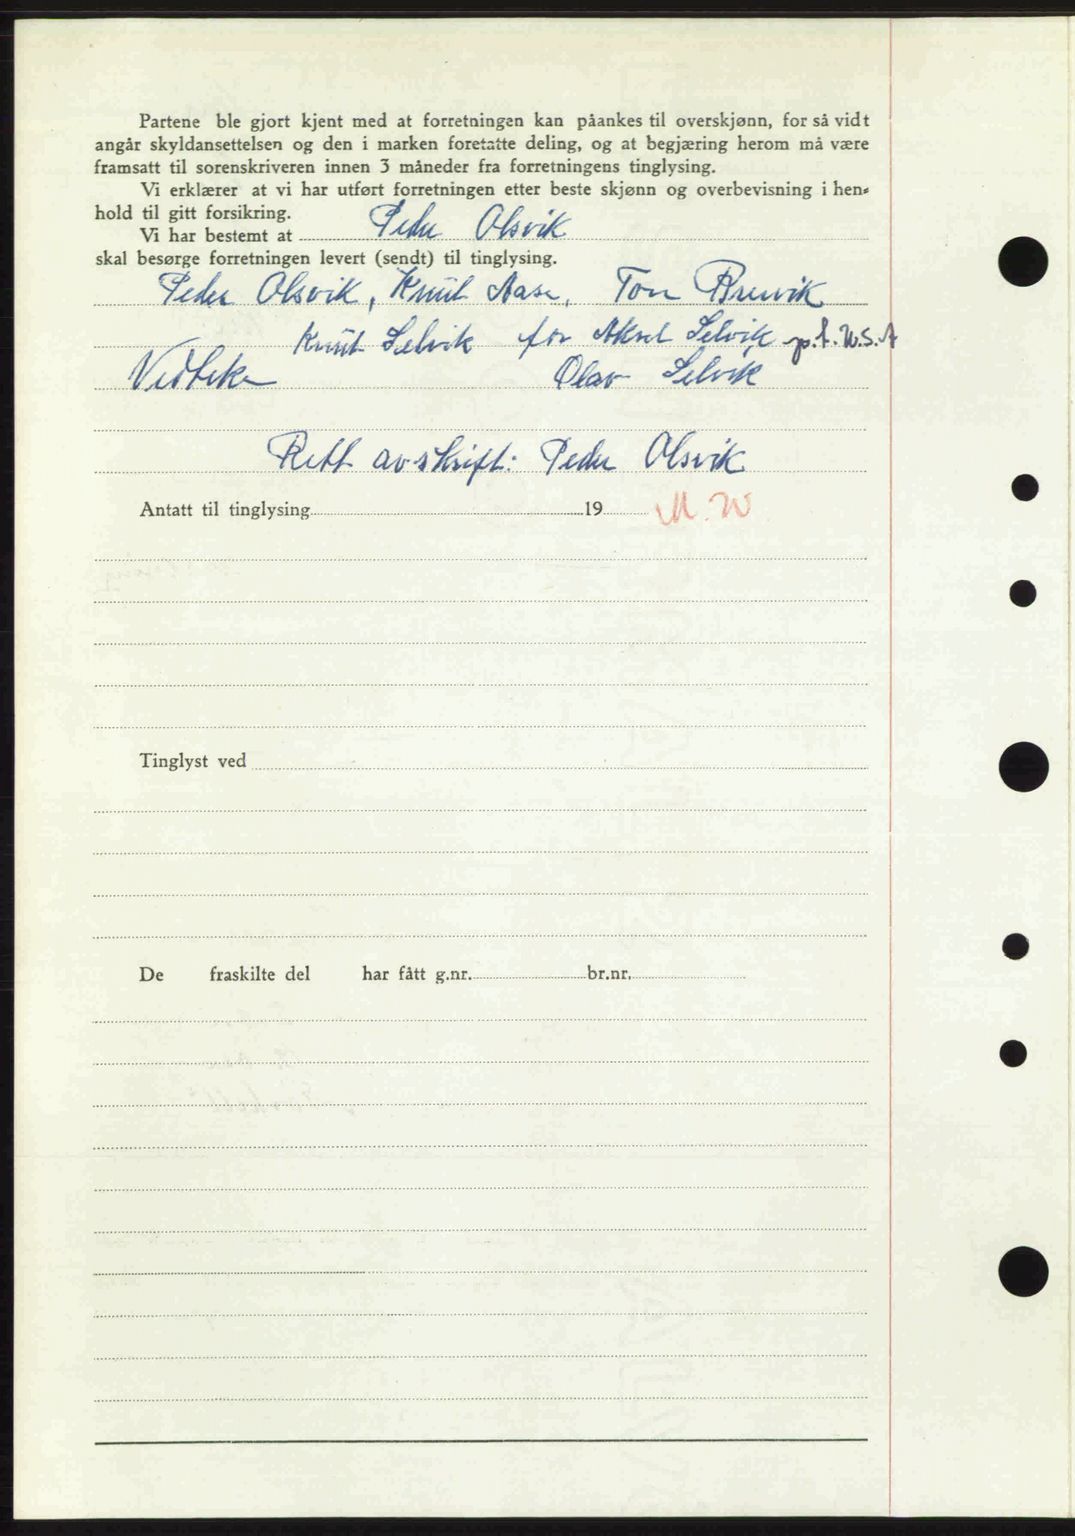 Partene ble gjort kjent med at forretningen kan påankes til overskjønn, for så vidt
angår skyldansettelsen og den i marken foretatte deling, og at begjæring herom må være
framsatt til sorenskriveren innen 3 måneder fra forretningens tinglysing.
Vi erklærer at vi har utført forretningen etter beste skjønn og overbevisning i hen-
hold til gitt forsikring.
Vi har bestemt at Peder Olsvik
skal besørge forretningen levert (sendt) til tinglysing.
Peder Olsvik, Knut Aase, Tore Brurvik
Knut Selvik for Aksel Selvik p.t. U.S.A
Vedteke Olav Selvik
Rett avskrift: Peder Olsvik
Antatt til tinglysing 19 M.W
Tinglyst ved
De fraskilte del har fått g.nr. br.nr.